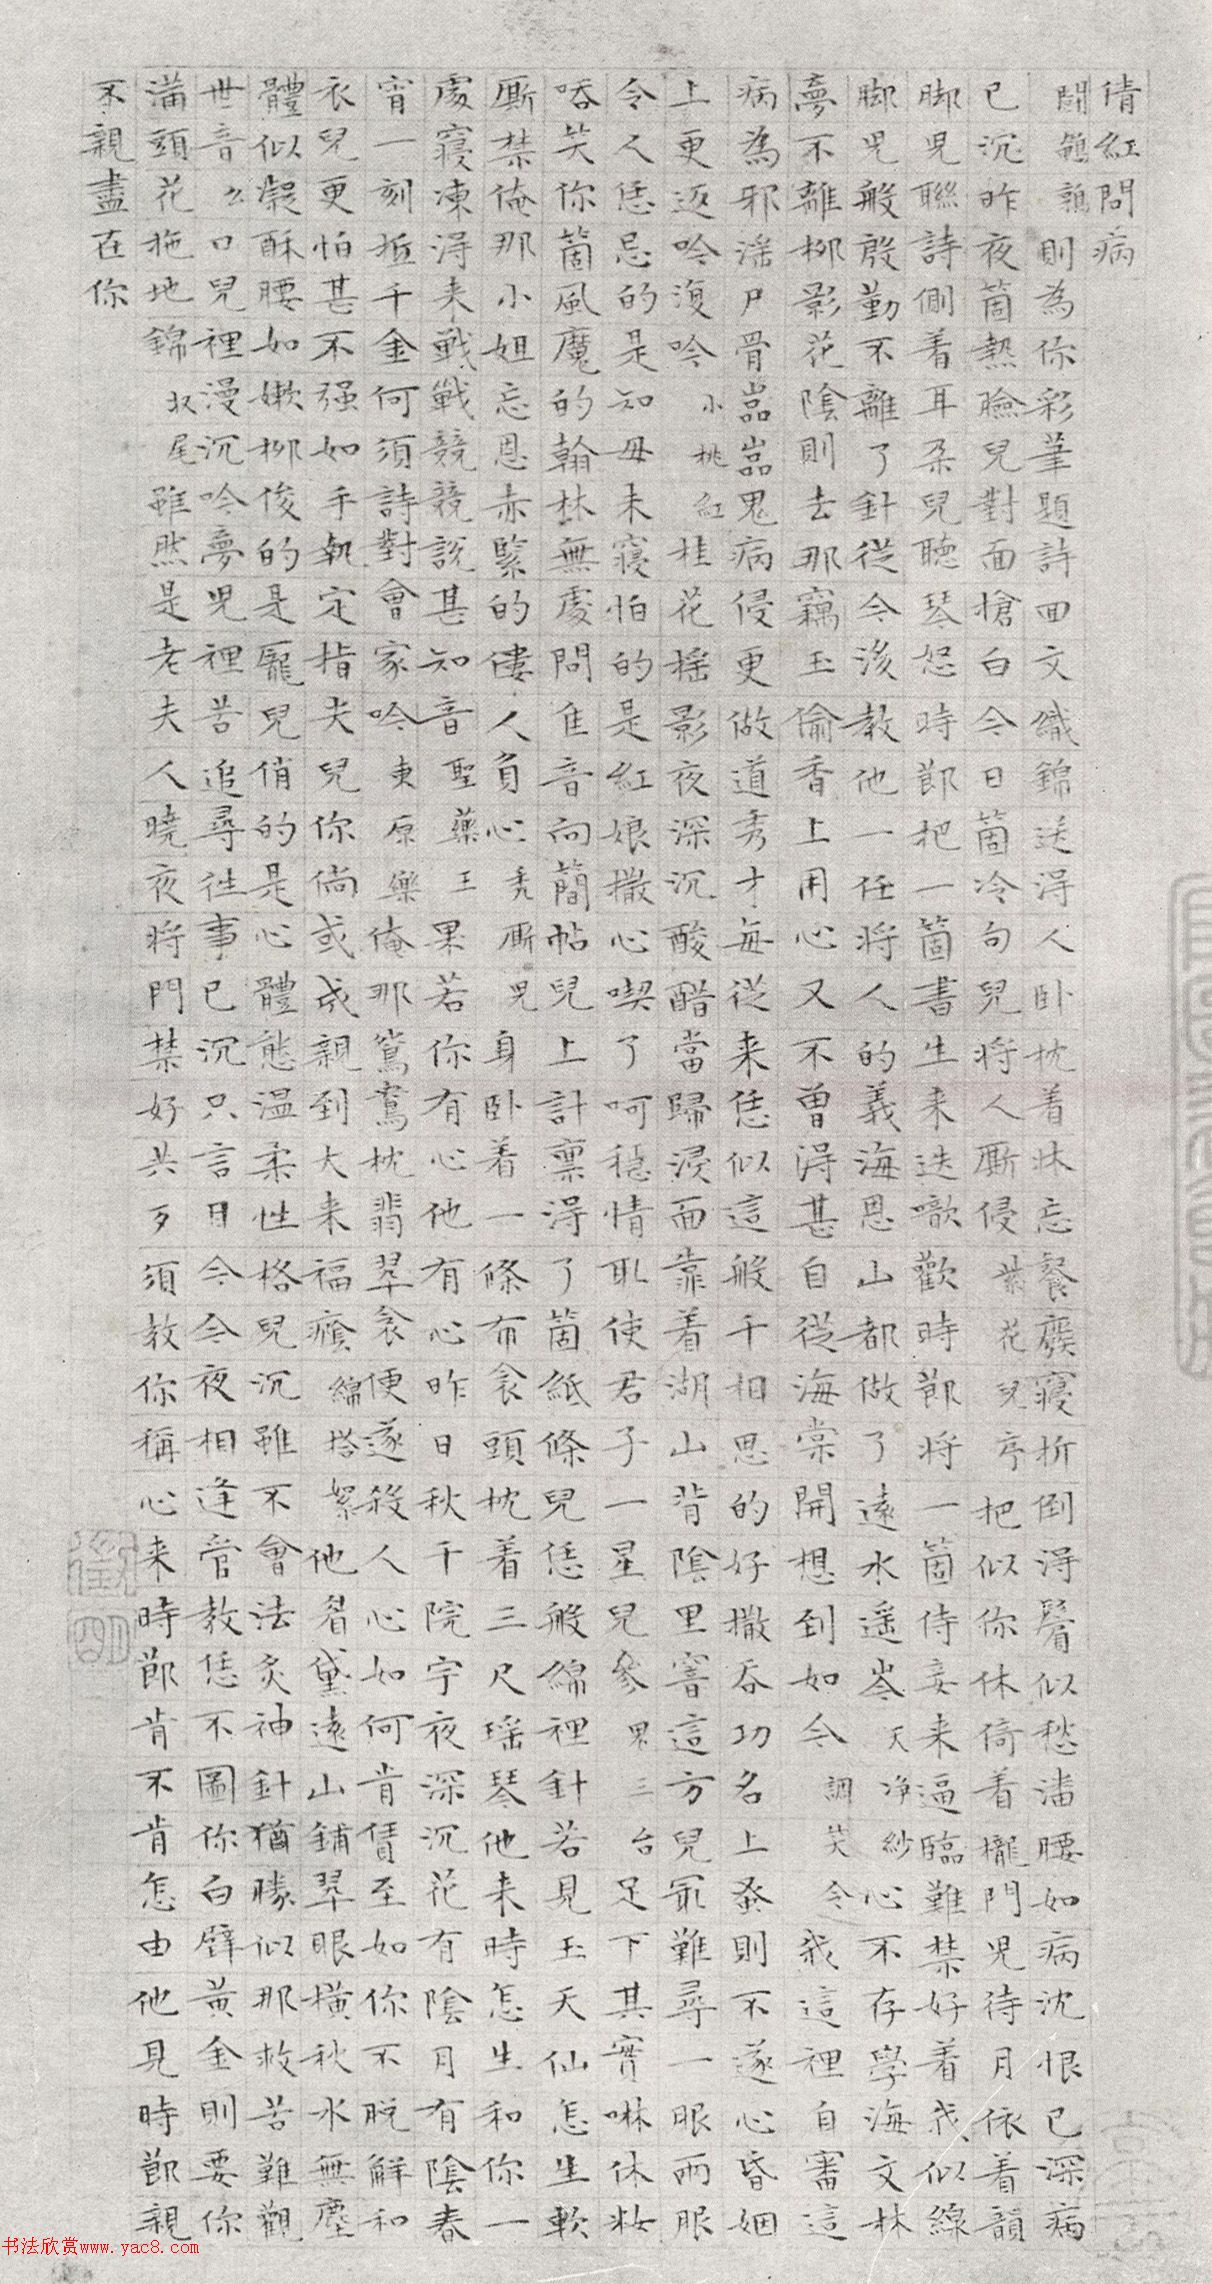 倩紅問病
鬪鵪鶉則為你彩筆題詩回文織錦送得人卧枕着牀忘餐廢寢折倒得鬢似愁潘腰如病沈恨已深病
已沉昨夜箇熱臉兒對面搶白今日箇冷句兒將人厮侵紫花兒序把似你休倚着櫳門兒待月依着韻
脚兒聯詩側着耳朵兒聽琴怒時節把一箇書生來迭噷歡時節將一箇侍妾來逼臨難禁好着我似線
脚兒般殷勤不離了針從今後教他一任將人的義海恩山都做了遠水遥岑天淨紗心不存學海文林
夢不離柳影花陰則去那竊玉偷香上用心又不曾得甚自從海棠開想到如今調笑令我這裡自審這
病為邪淫尸骨嵓嵓鬼病侵更做道秀才每從來恁似這般干相思的好撒吞功名上蚤則不遂心昏姻
上更返吟復吟小桃紅桂花摇影夜深沉酸醋當歸浸面靠着湖山背陰里窨這方兒最難尋一眼兩眼
令人恁忌的是知母未寢怕的是紅娘撒心喫了呵穩情取使君子一星兒參鬼三台足下其實啉休粧
吞笑你箇風魔的翰林無處問佳音向簡帖兒上計稟得了箇紙條兒恁般綿裡針若見玉天仙怎生軟
厮禁俺那小姐忘恩赤緊的僂人負心禿厮兒身卧着一條布衾頭枕着三尺瑶琴他來時怎生和你一
處寢凍得來戰戰兢兢說甚知音聖藥王果若你有心他有心昨日秋千院宇夜深沉花有陰月有陰春
宵一刻抵千金何須詩對會家吟東原樂俺那鴛鴦枕翡翠衾便遂殺人心如何肯賃至如你不脱觧和
衣兒更怕甚不强如手執定指夫兒你倘或成親到大來福癊綿搭絮他眉黛遠山鋪翠眼橫秋水無塵
體似凝酥腰如嫩柳俊的是龐兒俏的是心體態温柔性格兒沉雖不會法灸神針猶勝似那救苦難觀
世音幺口兒裡漫沉吟夢兒裡苦追尋往事已沉只言目今今夜相逢管教恁不圖你白璧黄金則要你
滿頭花拖地錦收尾雖然是老夫人曉夜將門禁好共歹須教你稱心來時節肯不肯怎由他見時節親
不親盡在你
書法欣賞www.yac8.com